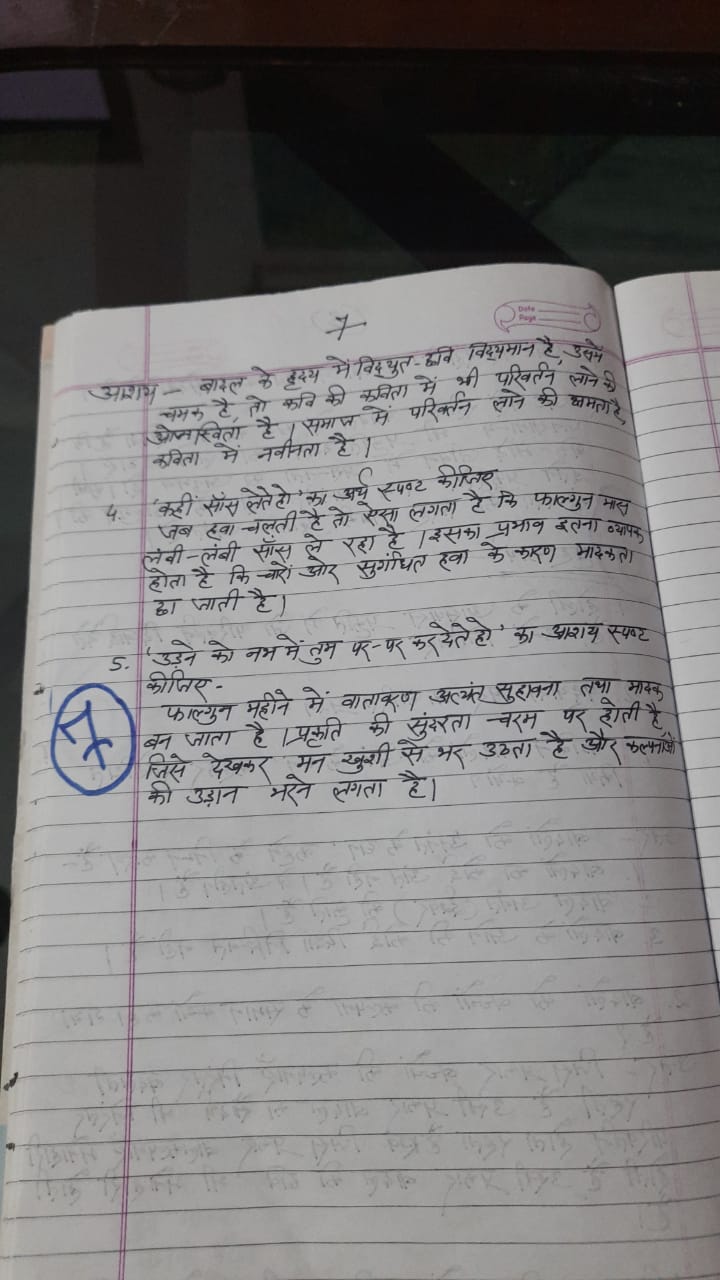 7
Date
Page
आशय - बादल के हृदय में विद्युत-छवि विद्यमान है, उसमें
चमक है, तो कवि की कविता में भी परिवर्तन लाने की
ओजस्विता है। समाज में परिवर्तन लाने की क्षमता है,
कविता में नवीनता है।
4. 'कहीं साँस लेते हो' का अर्थ स्पष्ट कीजिए
जब हवा चलती है तो ऐसा लगता है कि फाल्गुन मास
लंबी-लंबी साँस ले रहा है। इसका प्रभाव इतना व्यापक
होता है कि चारों ओर सुगंधित हवा के कारण मादकता
छा जाती है।
5. 'उड़ने को नभ में तुम पर-पर कर देते हो' का आशय स्पष्ट
कीजिए-
फाल्गुन महीने में वातावरण अत्यंत सुहावना तथा मादक
बन जाता है। प्रकृति की सुंदरता चरम पर होती है,
जिसे देखकर मन खुशी से भर उठता है और कल्पनाओं
की उड़ान भरने लगता है।
7